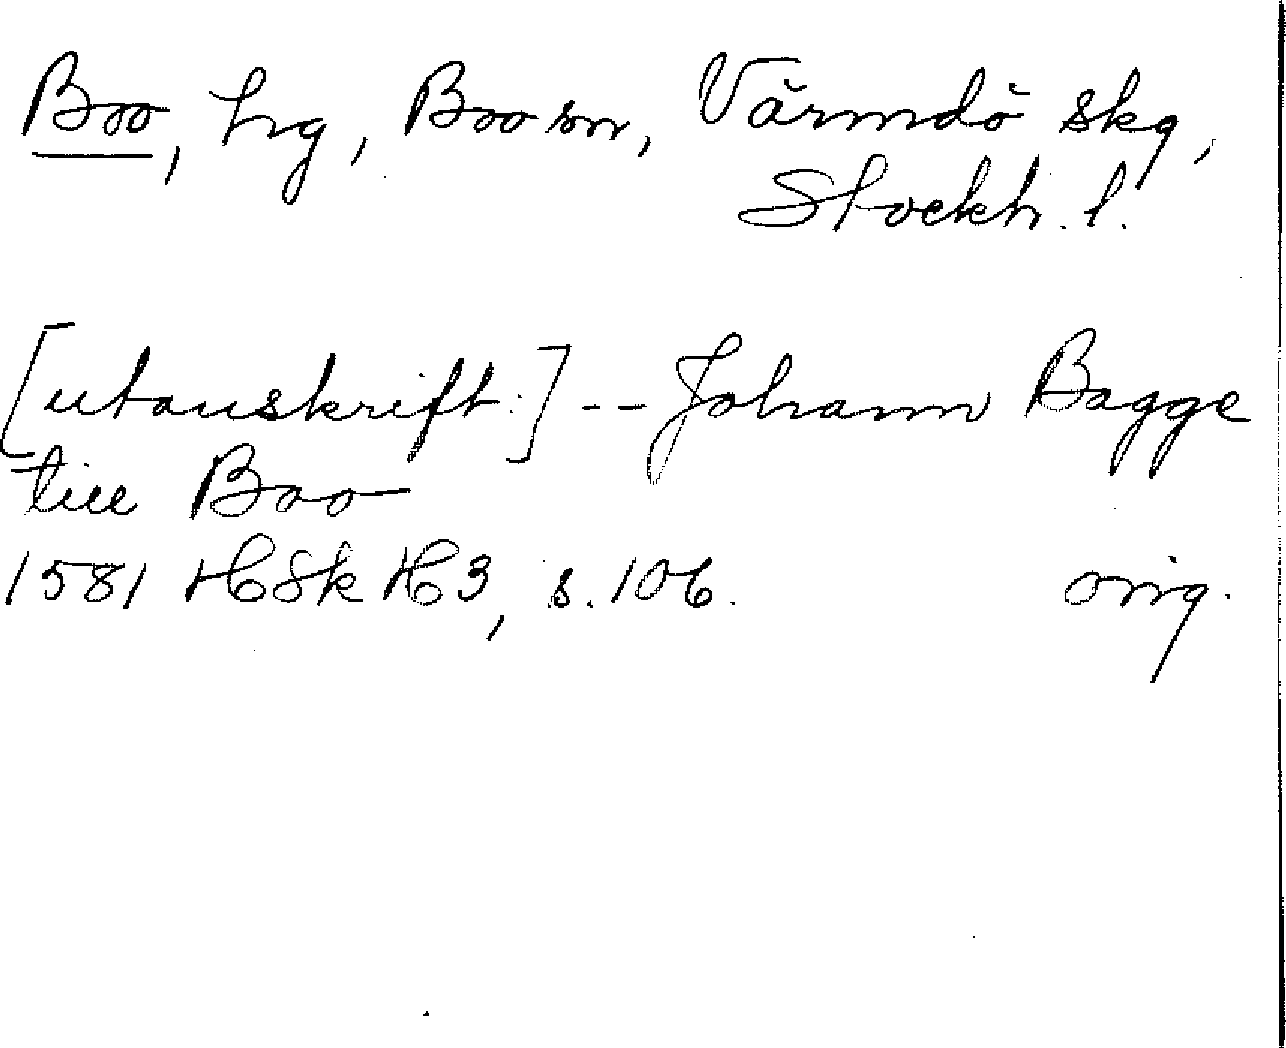 Boo, hg, Boo sn, Värmdö skg,
Stockh. l.
[utanskrift:] -- Johann Bagge
till Boo
1581 HSk H3, s. 106. orig.